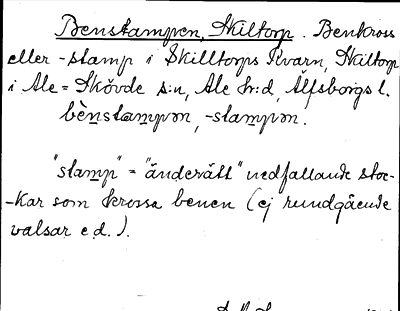 Benstampen, Skiltorp. Benkross
eller -stamp i Skilltorps Kvarn, Skiltorp
i Ale=Skövde s:n, Ale hr:d, Älfsborgs l.
bènstam̲pən, -stam̲pən.
"stamp" = "änderätt" nedfallande stoc-
-kar som krossa benen (ej rundgående
valsar e.d.).